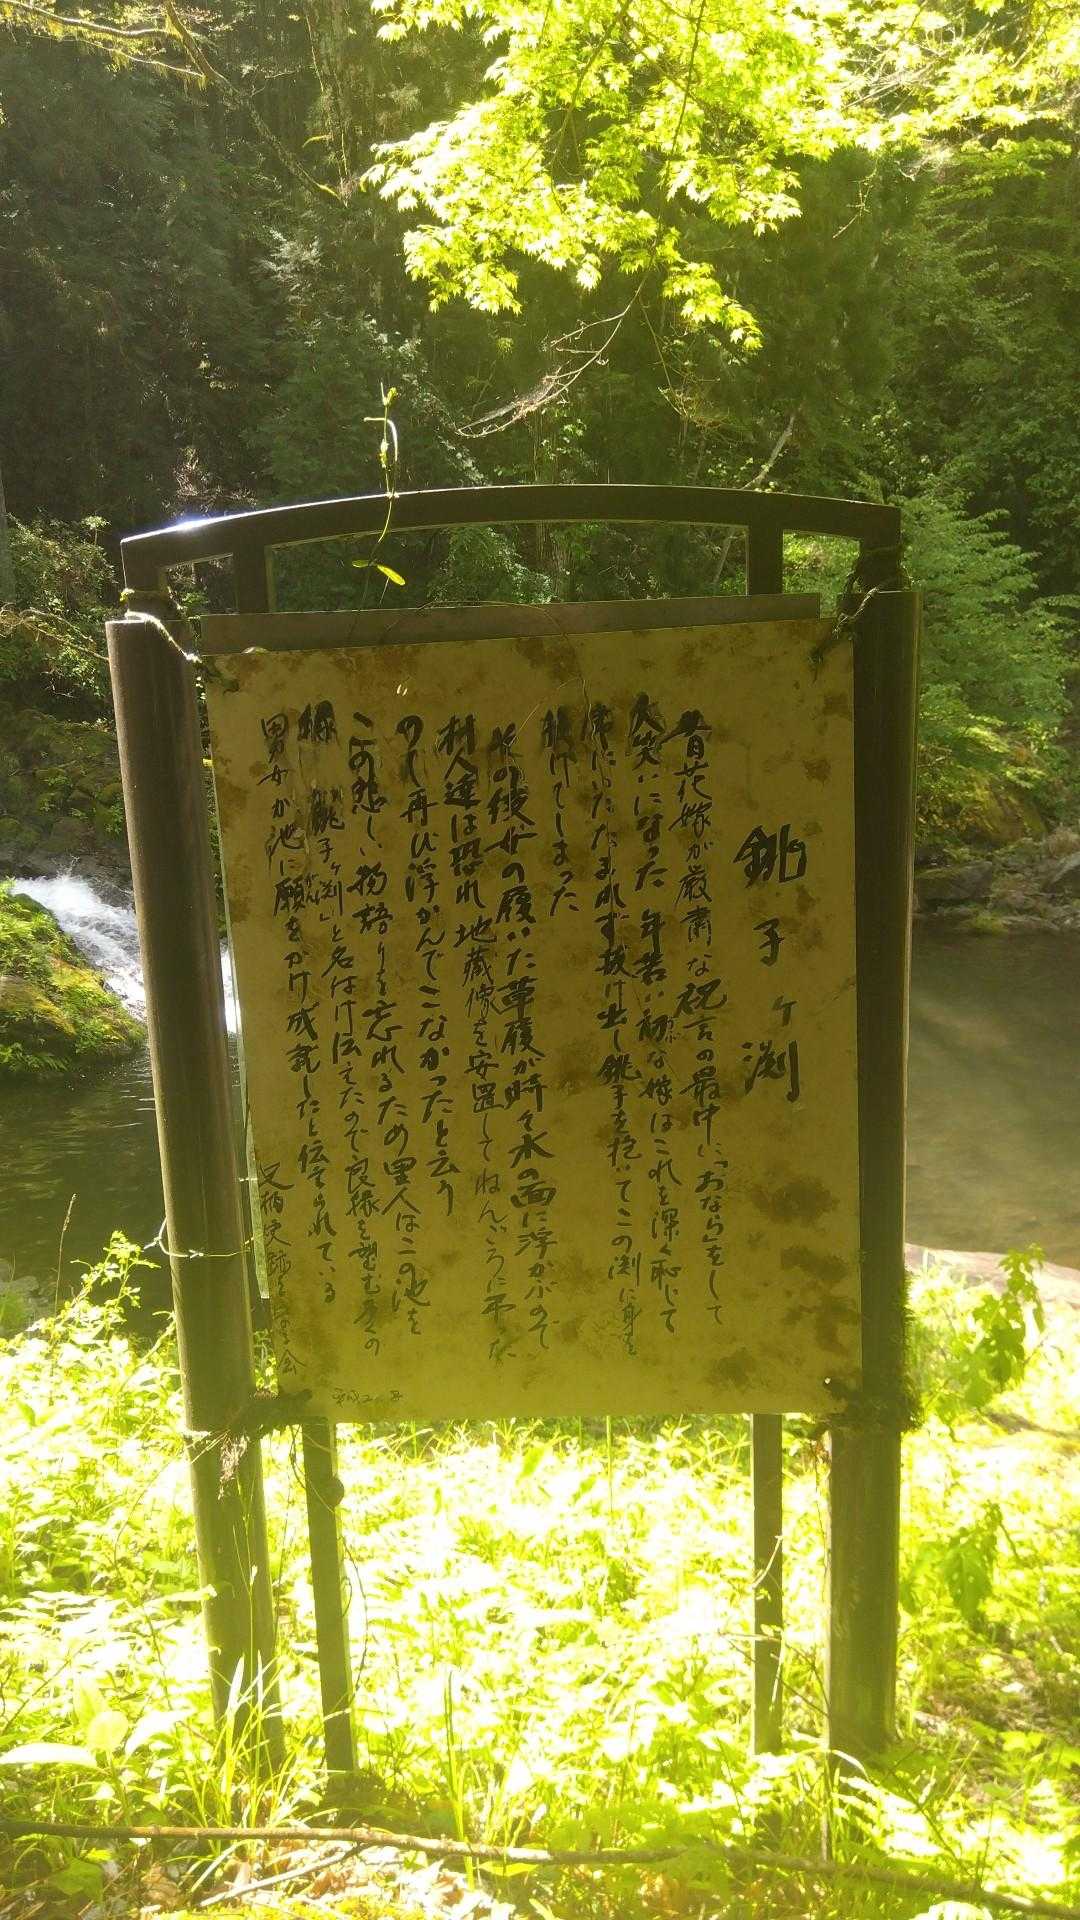 銚子ヶ渕
昔花嫁が厳粛な祝言の最中に「おなら」をして
大笑いになった 年若い初な嫁はこれを深く恥じて
席にいたたまれず抜け出し銚子を抱いてこの渕に身を
投げてしまった
その後女の履いた草履が時々水の面に浮かぶので
村人達は恐れ地蔵像を安置してねんごろに弔た
ので再び浮かんでこなかったと云う
この悲しい物語りを忘れるため里人はこの池を
縁 銚子ヶ渕」と名付け伝えたので良縁を望む多くの
男女が池に願をかけ成就したと伝えられている